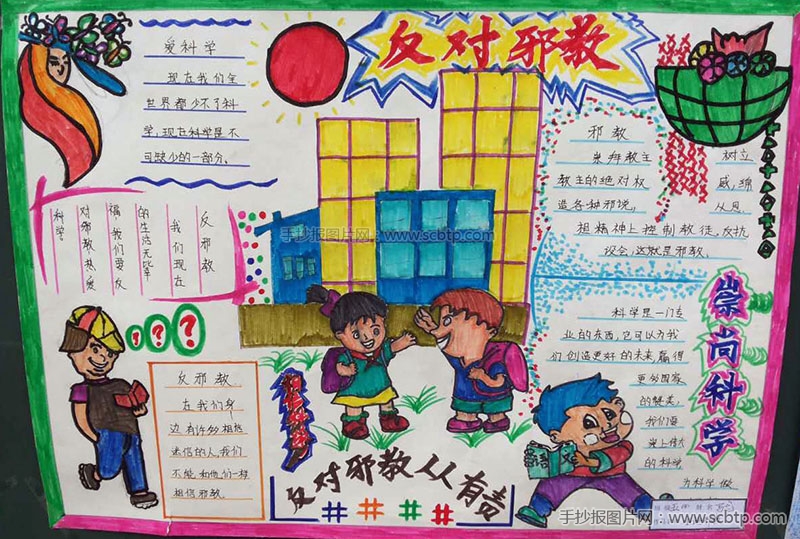 反对邪教
爱科学
现在我们全
世界都少不了科
学,现在科学是不
可缺少的一部分。
邪教
崇拜教主
教主的绝对权
造各种邪说,
树立
威,编
从思,
想精神上控制教徒,反抗
议会,这就是邪教。
反邪教
我们现在
的生活无比幸
福,我们要反
对邪教热爱
科学
手抄报图片网:www.scbtp.com
崇尚科学
科学是一门专
业的东西,它可以为我
们创造更好的未来,赢得
更多国家
的
我们要
爱上伟大
的科学
为科学做
反邪教
在我们身
边有许多相信
迷信的人,我们
不能和他们一样
相信邪教。
反对邪教人人有责
手抄报图片网:www.scbtp.com